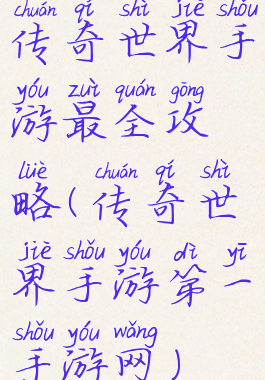 chuán qí shì jiè shǒu
传奇世界手
yóu zuì quán gōng
游最全攻
lüè chuán qí shì
略(传奇世
jiè shǒu yóu dì yī
界手游第一
shǒu yóu wǎng
手游网)